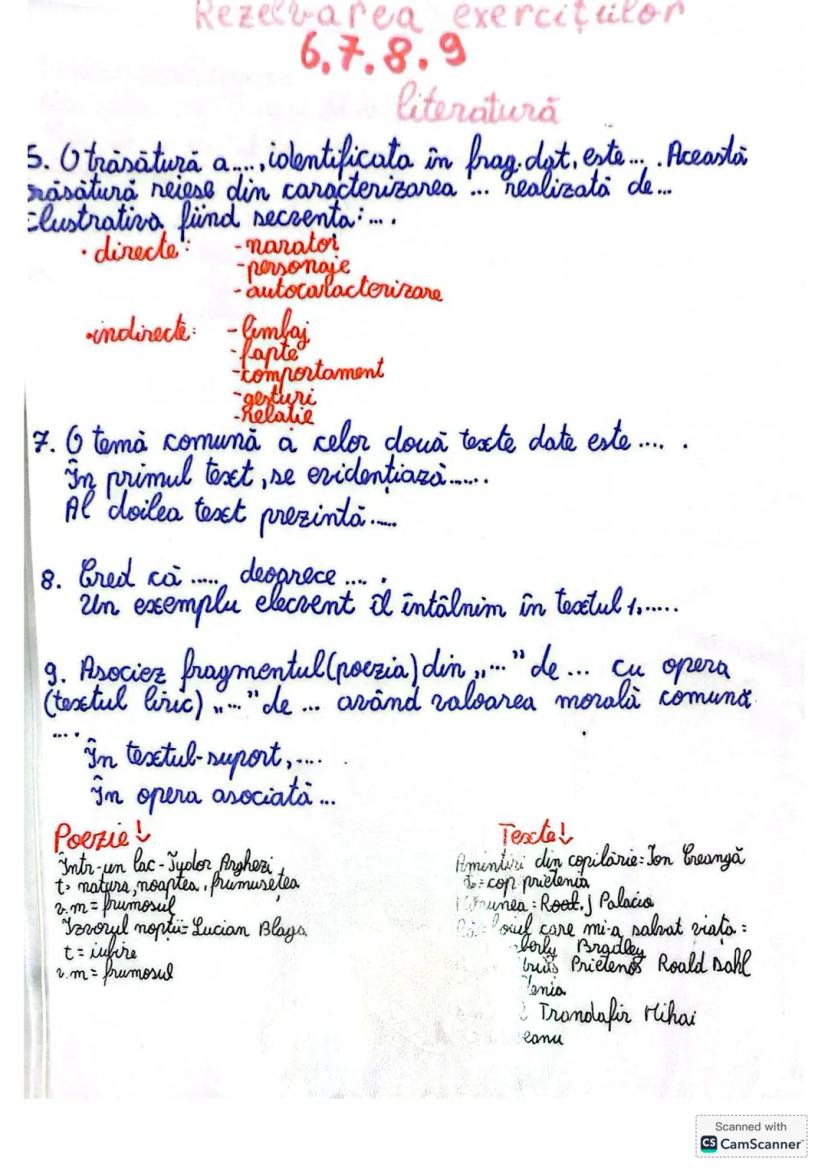 Rezolvarea exercițiilor
6.7.8.9
literatură
5. O trăsătură a...., identificata în frag.dat, este... . Această
trăsătură reiese din caracterizarea ... realizată de...
Ilustrativa fiind secvența:... .
• directe: -narator
-personaje
-autocaracterizare
•indirecte: -limbaj
-fapte
-comportament
-gesturi
-relatie
7. O temă comună a celor două texte date este .... .
În primul text, se evidențiază......
Al doilea text prezintă.....
8. Cred că ..... deoarece .... .
Un exemplu elecvent îl întâlnim în textul 1,.....
9. Asociez fragmentul(poezia) din „..." de ... cu opera
(textul liric) „..." de ... având valoarea morală comună
... .
În textul-suport,....
În opera asociată...
Poezie!
Într-un lac-Tudor Arghezi
t= natura, noaptea, frumusetea
v.m= frumosul
Izvorul nopții= Lucian Blaga
t= iubire
v.m= frumosul
Texte!
Amintiri din copilărie= Ion Creangă
cop prietenia
J Palacio
care mi-a salvat viața =
Bradley
Prietenos Roald Dahl
Trandafir Mihai